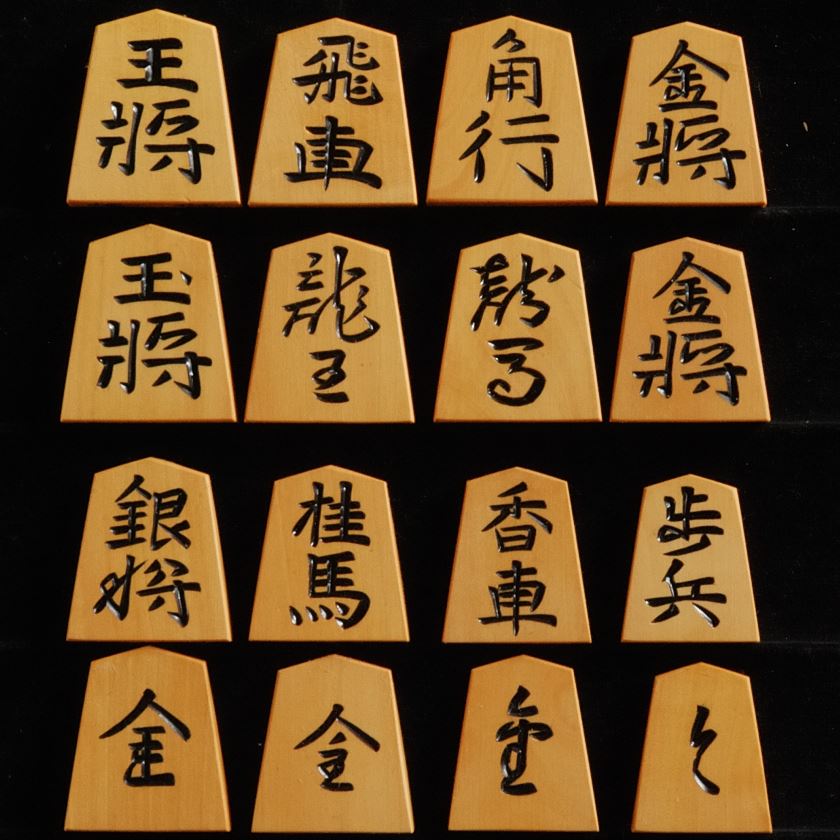 王將
飛車
角行
金將
玉將
龍王
龍馬
金將
銀将
桂馬
香車
歩兵
金
全
金
と